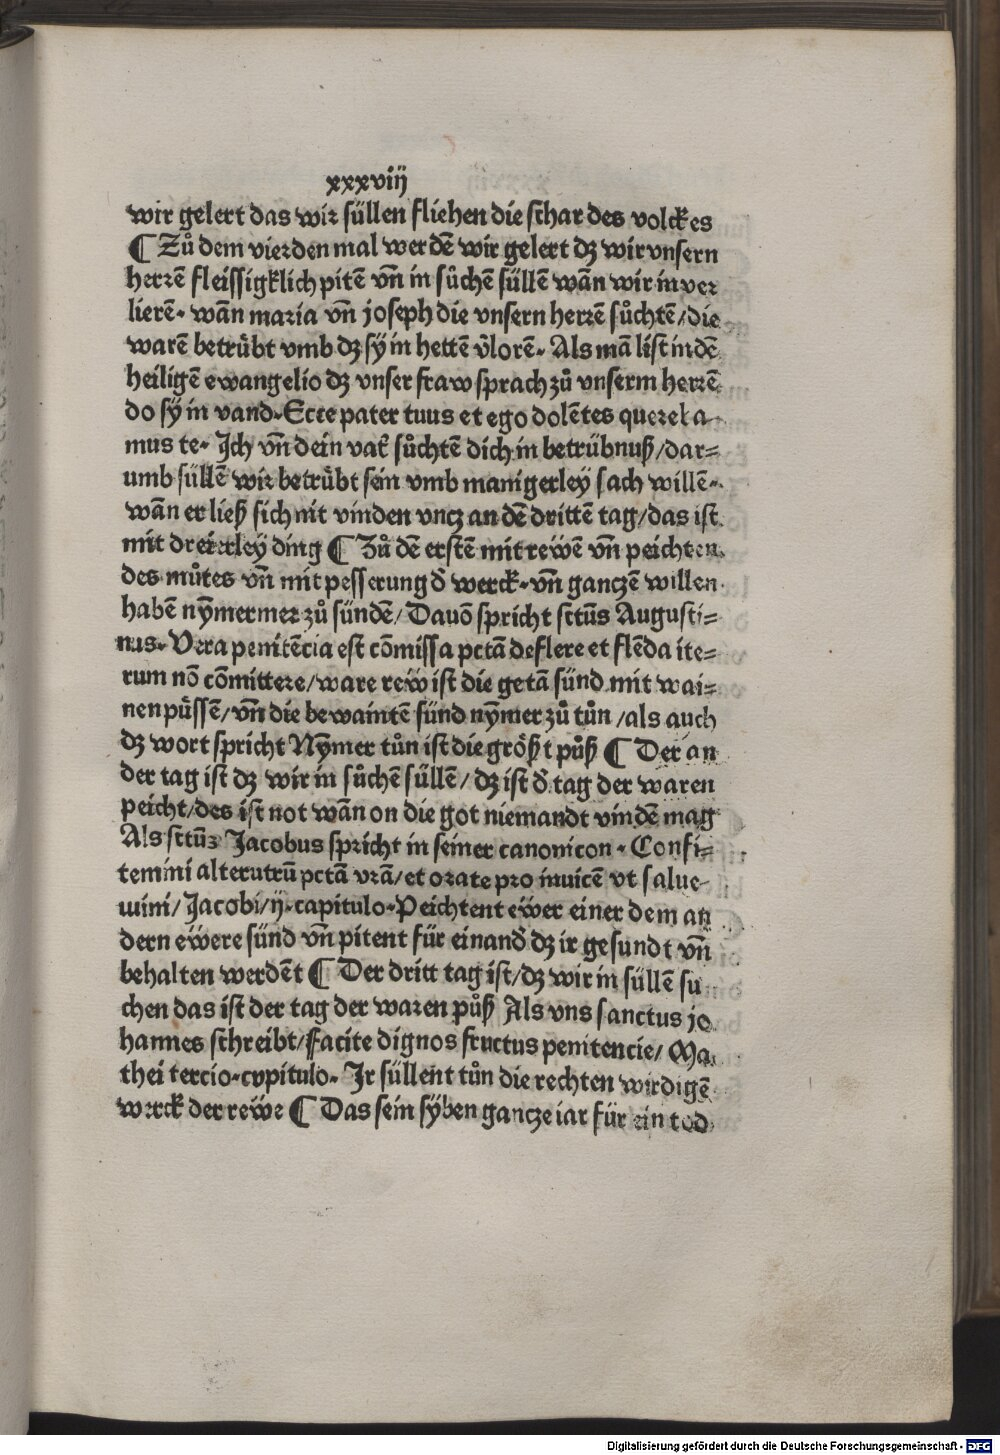 xxxviij
wir gelert das wir süllen fliehen die schar des volckes
¶ Zů dem vierden mal werdē wir gelert dz wir vnsern
herrē fleissigklich pitē vn̄ in sůchē süllē wān wir in ver
lierē· wān maria vn̄ joseph die vnsern herrē sůchtē/die
warē betrübt vmb dz sÿ in hettē v̄lorē· Als mā list in dē
heiligē ewangelio dz vnser fraw sprach zů vnserm herrē
do sÿ in vand·Ecce pater tuus et ego dolētes querela
mus te· Ich vn̄ dein vat̄ sůchtē dich in betrübnuß/dar=
umb süllē wir betrübt sein vmb manigerley sach willē·
wān er ließ sich nit vinden vncz an dē drittē tag/das ist
mit dreierley ding ¶ Zů dē erstē mit rewē vn̄ peichten
des můtes vn̄ mit pesserung d̄ werck·vn̄ ganczē willen
habē nȳmermer zů sündē/Dauō spricht sctūs Augusti=
nus·Vera penitēcia est cōmissa pctā deflere et flēda ite=
rum nō cōmittere/ware rew ist die getā sünd mit wai=
nen püssē/vn̄ die bewaintē sünd nȳmer zů tůn /als auch
dz wort spricht Nȳmer tůn ist die größt půß ¶ Der an
der tag ist dz wir in sůchē süllē/ dz ist d̄ tag der waren
peicht/des ist not wān on die got niemandt vindē mag
Als sctūs Jacobus spricht in seiner canonicon·Confi=
temini alterutrū pctā vrā/et orate pro inuicē vt salue
mini/Jacobi/ij·capitulo·Peichtent ewer einer dem an
dern ewere sünd vn̄ pitent für einand̄ dz ir gesundt vn̄
behalten werdēt ¶ Der dritt tag ist/dz wir in süllē su
chen das ist der tag der waren půß Als vns sanctus jo
hannes schreibt/Facite dignos fructus penitencie/ Ma
thei tercio·cupitulo· Ir süllent tůn die rechten wirdigē
werck der rewe ¶ Das sein sÿben gancze iar für ein tod
Digitalisierung gefördert durch die Deutsche Forschungsgemeinschaft - DFG